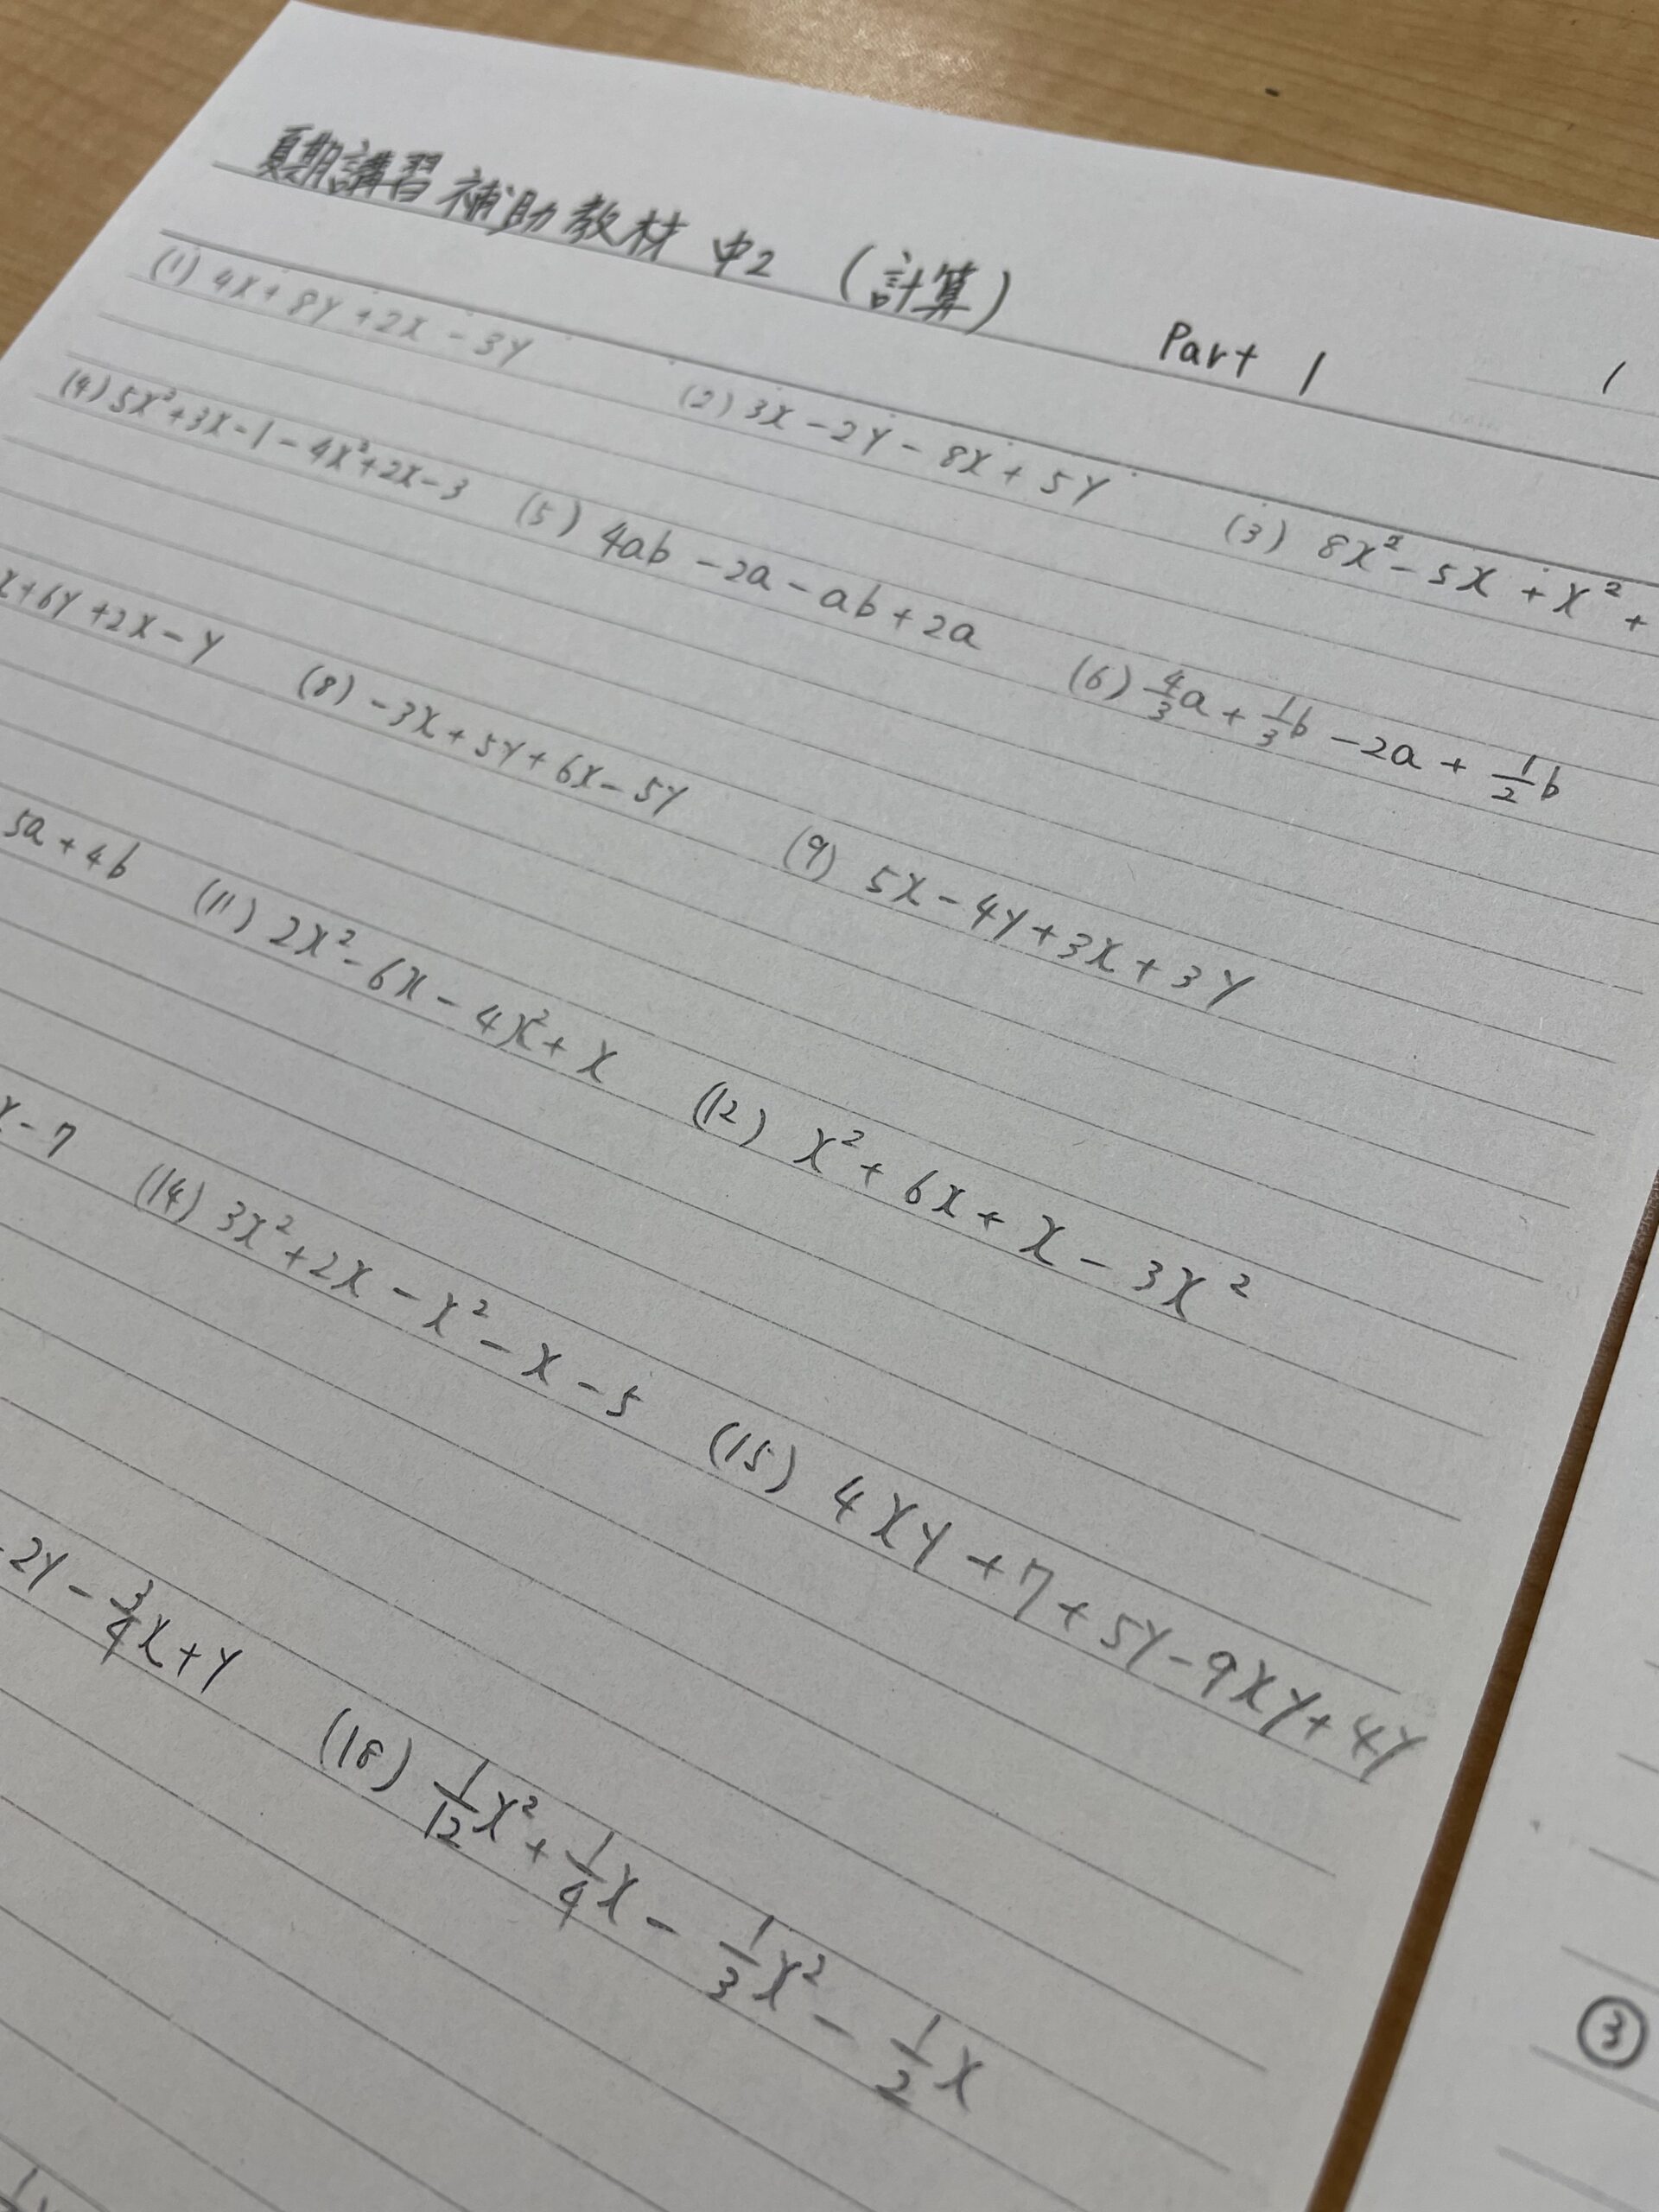 夏期講習 補助教材 中2 (計算) Part 1 1
(1) 4x+8y+2x-3y (2) 3x-2y-8x+5y (3) 8x²-5x+x²+
(4) 5x²+3x-1-4x²+2x-3 (5) 4ab-2a-ab+2a (6) 4/3a+1/3b-2a+1/2b
x+6y+2x-y (8) -3x+5y+6x-5y (9) 5x-4y+3x+3y
5a+4b (11) 2x²-6x-4x²+x (12) x²+6x+x-3x²
-7 (14) 3x²+2x-x²-x-5 (15) 4xy+7+5y-9xy+4y
2y-3/4x+y (18) 1/12x²+1/4x-1/3x²-1/2x
③